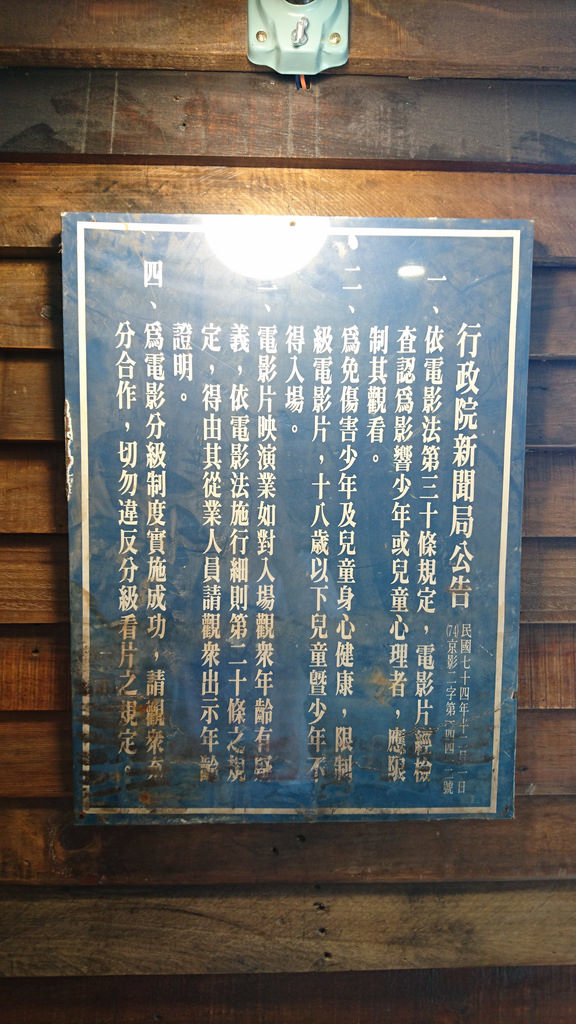 行政院新聞局公告
民國七十四年十二月一日
(74)京影二字第 號
一、依電影法第三十條規定，電影片經檢
查認爲影響少年或兒童心理者，應限
制其觀看。
二、爲免傷害少年及兒童身心健康，限制
級電影片，十八歲以下兒童曁少年不
得入場。
三、電影片映演業如對入場觀衆年齡有疑
義，依電影法施行細則第二十條之規
定，得由其從業人員請觀衆出示年齡
證明。
四、爲電影分級制度實施成功，請觀衆充
分合作，切勿違反分級看片之規定。